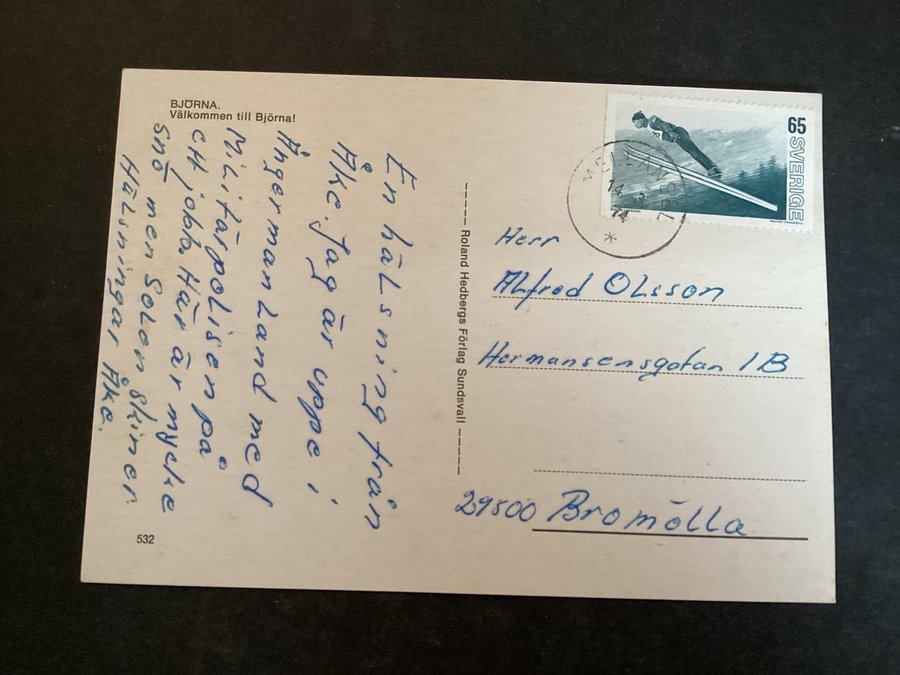 BJÖRNA.
Välkommen till Björna!
En hälsning från
Åke. Jag är uppe i
Ångermanland med
Militärpolisen på
ett jobb. Här är mycke
snö men Solen skiner
Hälsningar Åke.
532
Roland Hedbergs Förlag Sundsvall
65
SVERIGE
14
74
Herr
Alfred Olsson
Hermansensgatan 1B
29500 Bromölla